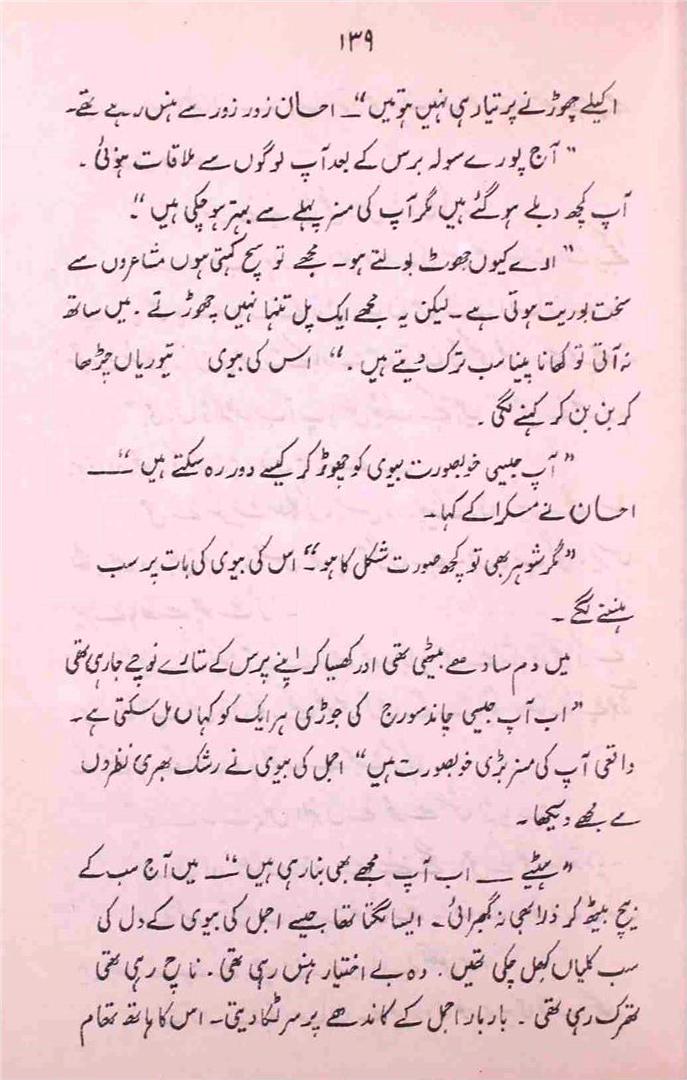 ۱۳۹
اکیلے چھوڑنے پر تیار ہی نہیں ہوتیں"۔ احسان زور زور سے ہنس رہے تھے۔
"آج پورے سولہ برس کے بعد آپ لوگوں سے ملاقات ہوئی۔
آپ کچھ دبلے ہو گئے ہیں مگر آپ کی مسز پہلے سے بہتر ہو چکی ہیں"۔
"ارے کیوں جھوٹ بولتے ہو۔ مجھے تو سچ کہتی ہوں مشاعروں سے
سخت بوریت ہوتی ہے۔ لیکن یہ مجھے ایک پل تنہا نہیں چھوڑتے۔ میں ساتھ
نہ آتی تو کھانا پینا سب ترک دیتے ہیں۔" اس کی بیوی تیوریاں چڑھا
کر بن بن کر کہنے لگی۔
"آپ جیسی خوبصورت بیوی کو چھوڑ کر کیسے دور رہ سکتے ہیں"۔
احسان نے مسکرا کے کہا۔
"مگر شوہر بھی تو کچھ صورت شکل کا ہو"۔ اس کی بیوی کی بات پر سب
ہنسنے لگے۔
میں دم سادھے بیٹھی تھی اور کھسیا کر اپنے پرس کے ستارے نوچے جا رہی تھی
"اب آپ جیسی چاند سورج کی جوڑی ہر ایک کو کہاں مل سکتی ہے۔
واقعی آپ کی مسز بڑی خوبصورت ہیں" اجمل کی بیوی نے رشک بھری نظروں
سے مجھے دیکھا۔
"ہٹیے ۔۔ اب آپ مجھے بھی بنا رہی ہیں"۔ میں آج سب کے
بیچ بیٹھ کر ذرا بھی نہ گھبرائی۔ ایسا لگتا تھا جیسے اجمل کی بیوی کے دل کی
سب کلیاں کھل چکی تھیں۔ وہ بے اختیار ہنس رہی تھی۔ ناچ رہی تھی
تھرک رہی تھی۔ بار بار اجمل کے کاندھے پر سر ٹکا دیتی۔ اس کا ہاتھ تھام